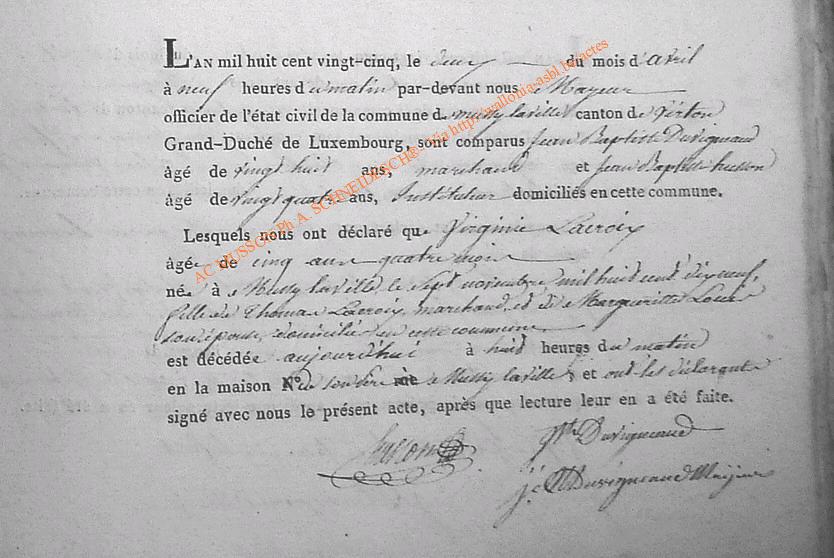 L'AN mil huit cent vingt-cinq, le deux du mois d'avril
à neuf heures du matin par-devant nous Mayeur
officier de l'état civil de la commune de Mussy laville canton de Virton
Grand-Duché de Luxembourg, sont comparus Jean Baptiste Duvigneaud
âgé de vingt huit ans, marchand et Jean Baptiste husson
âgé de vingt quatre ans, Instituteur domiciliés en cette commune.
Lesquels nous ont déclaré que Virginie Lacroix
âgée de cinq ans quatre mois
née à Mussy laville le Sept novembre mil huit cent dix neuf,
fille de Thomas Lacroix, marchand, et de Marguerite
son épouse, domiciliés en cette commune
est décédée aujourd'hui à huit heures du matin
en la maison N° de son père rue de Mussy laville, et ont les déclarants
signé avec nous le présent acte, après que lecture leur en a été faite.
husson Duvigneaud
Duvigneaud Mayeur
AC MUSSON Ph A. SCHNEIDESCH® Via http://wallonia-asbl.be/actes